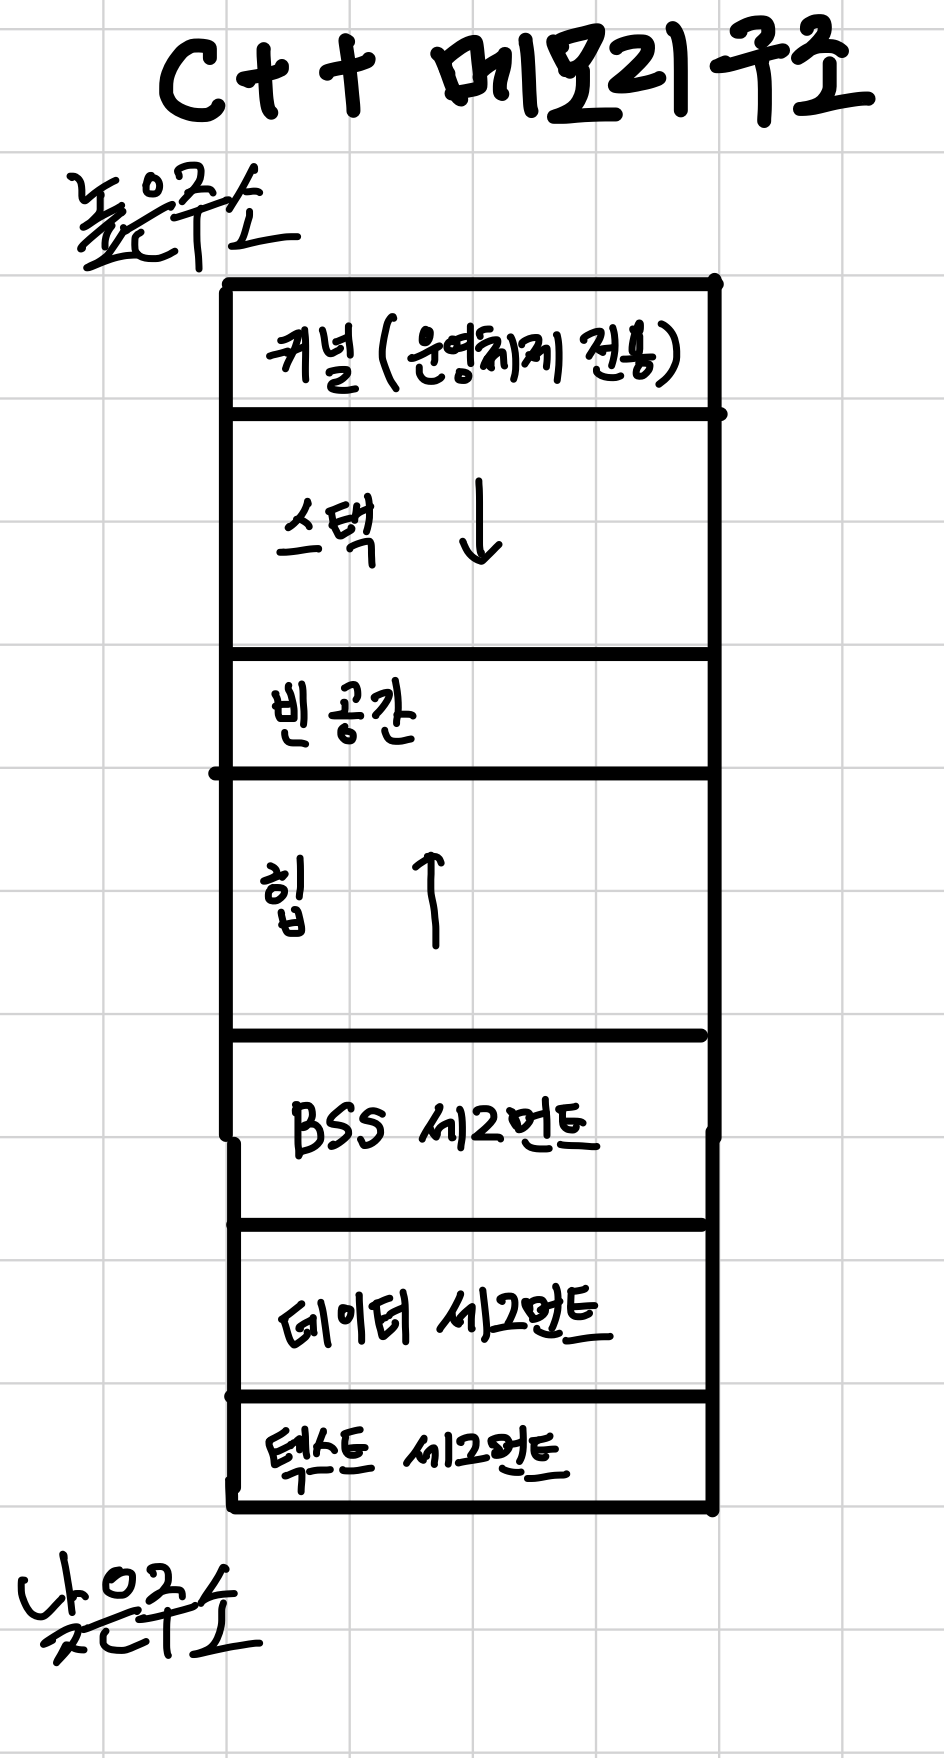 C++ 메모리구조
높은주소
커널 (운영체제 전용)
스택 ↓
빈 공간
힙 ↑
BSS 세그먼트
데이터 세그먼트
텍스트 세그먼트
낮은주소